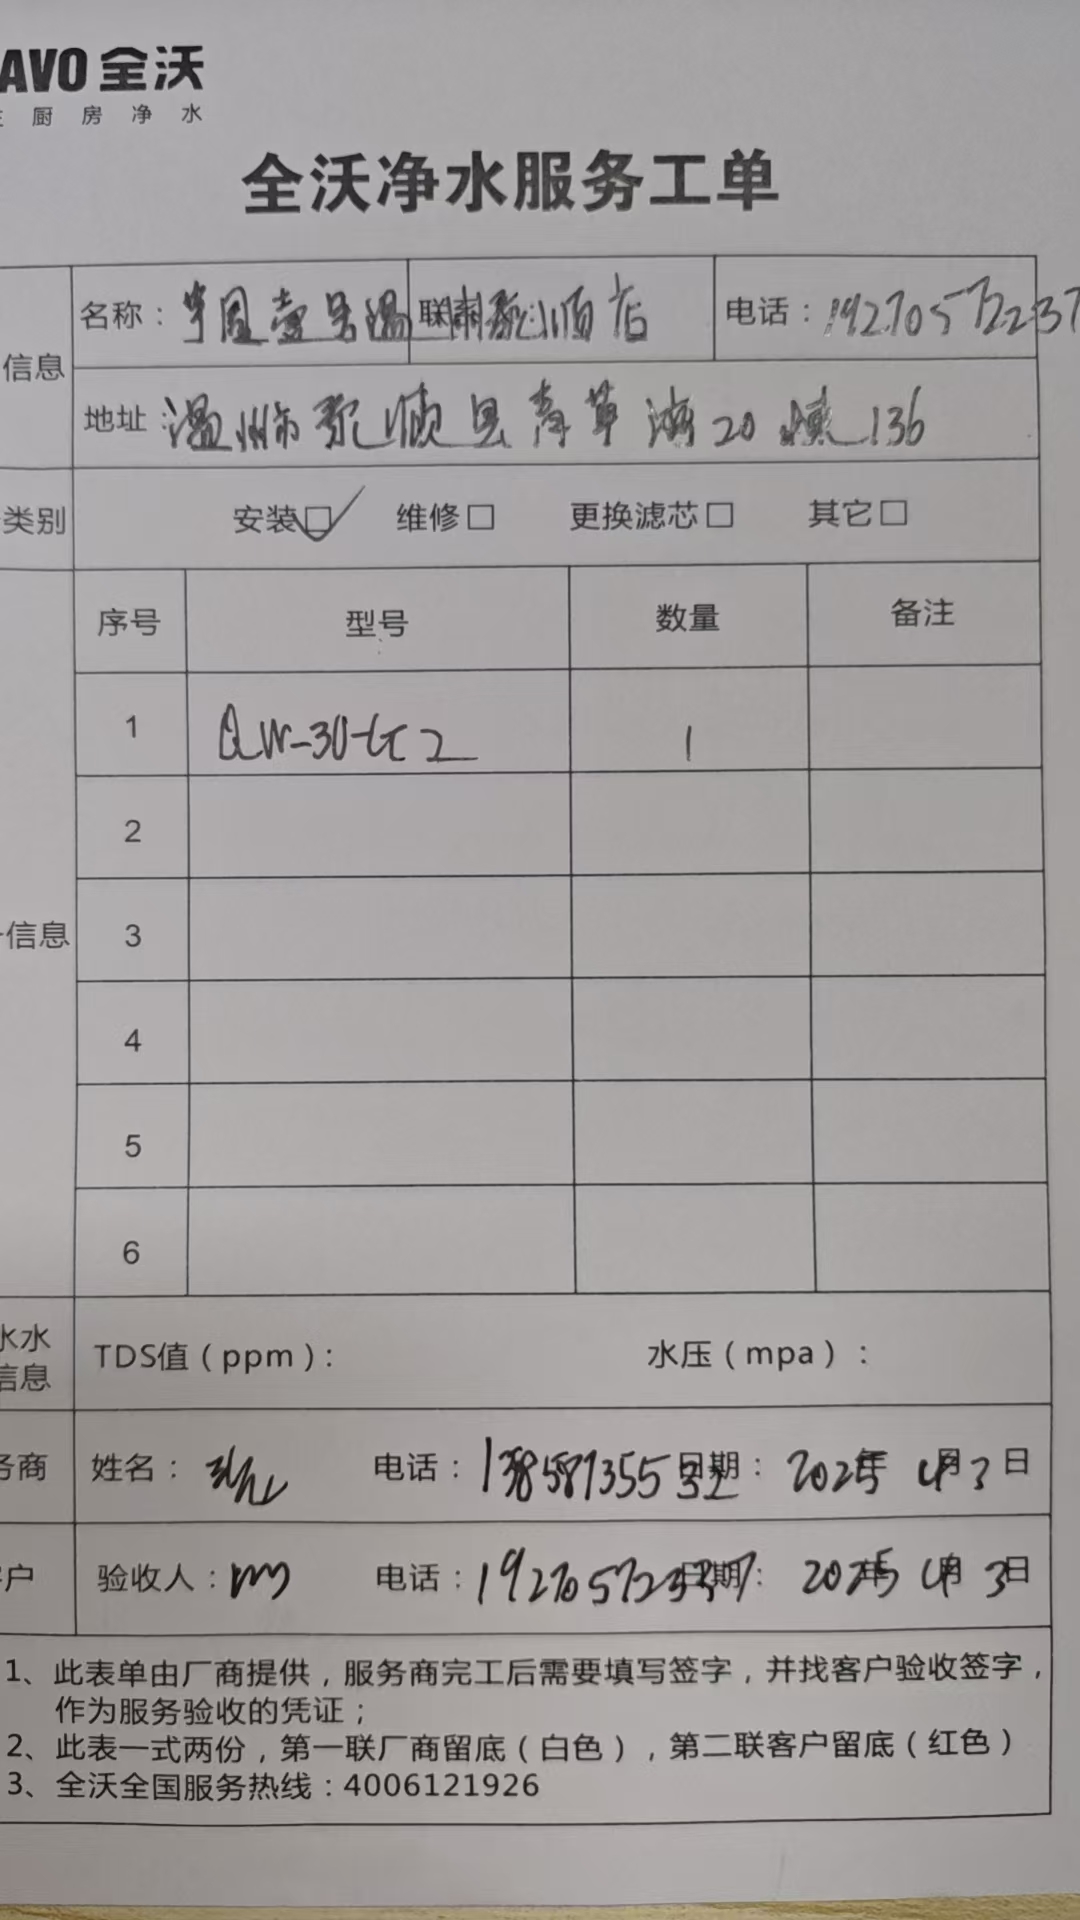 AVO 全沃
厨房净水
全沃净水服务工单
名称：壹号温 联 顺店 电话：19270572237
信息
地址：温州市泰顺县青草 20 136
类别 安装☑ 维修□ 更换滤芯□ 其它□
序号 型号 数量 备注
1 QW-30-G2 1
2
信息 3
4
5
6
水水
信息
TDS值（ppm）： 水压（mpa）：
务商 姓名： 电话：13858735532 日期：2025年4月3日
户 验收人： 电话：19270572237 日期：2025年4月3日
1、此表单由厂商提供，服务商完工后需要填写签字，并找客户验收签字，
作为服务验收的凭证；
2、此表一式两份，第一联厂商留底（白色），第二联客户留底（红色）
3、全沃全国服务热线：4006121926